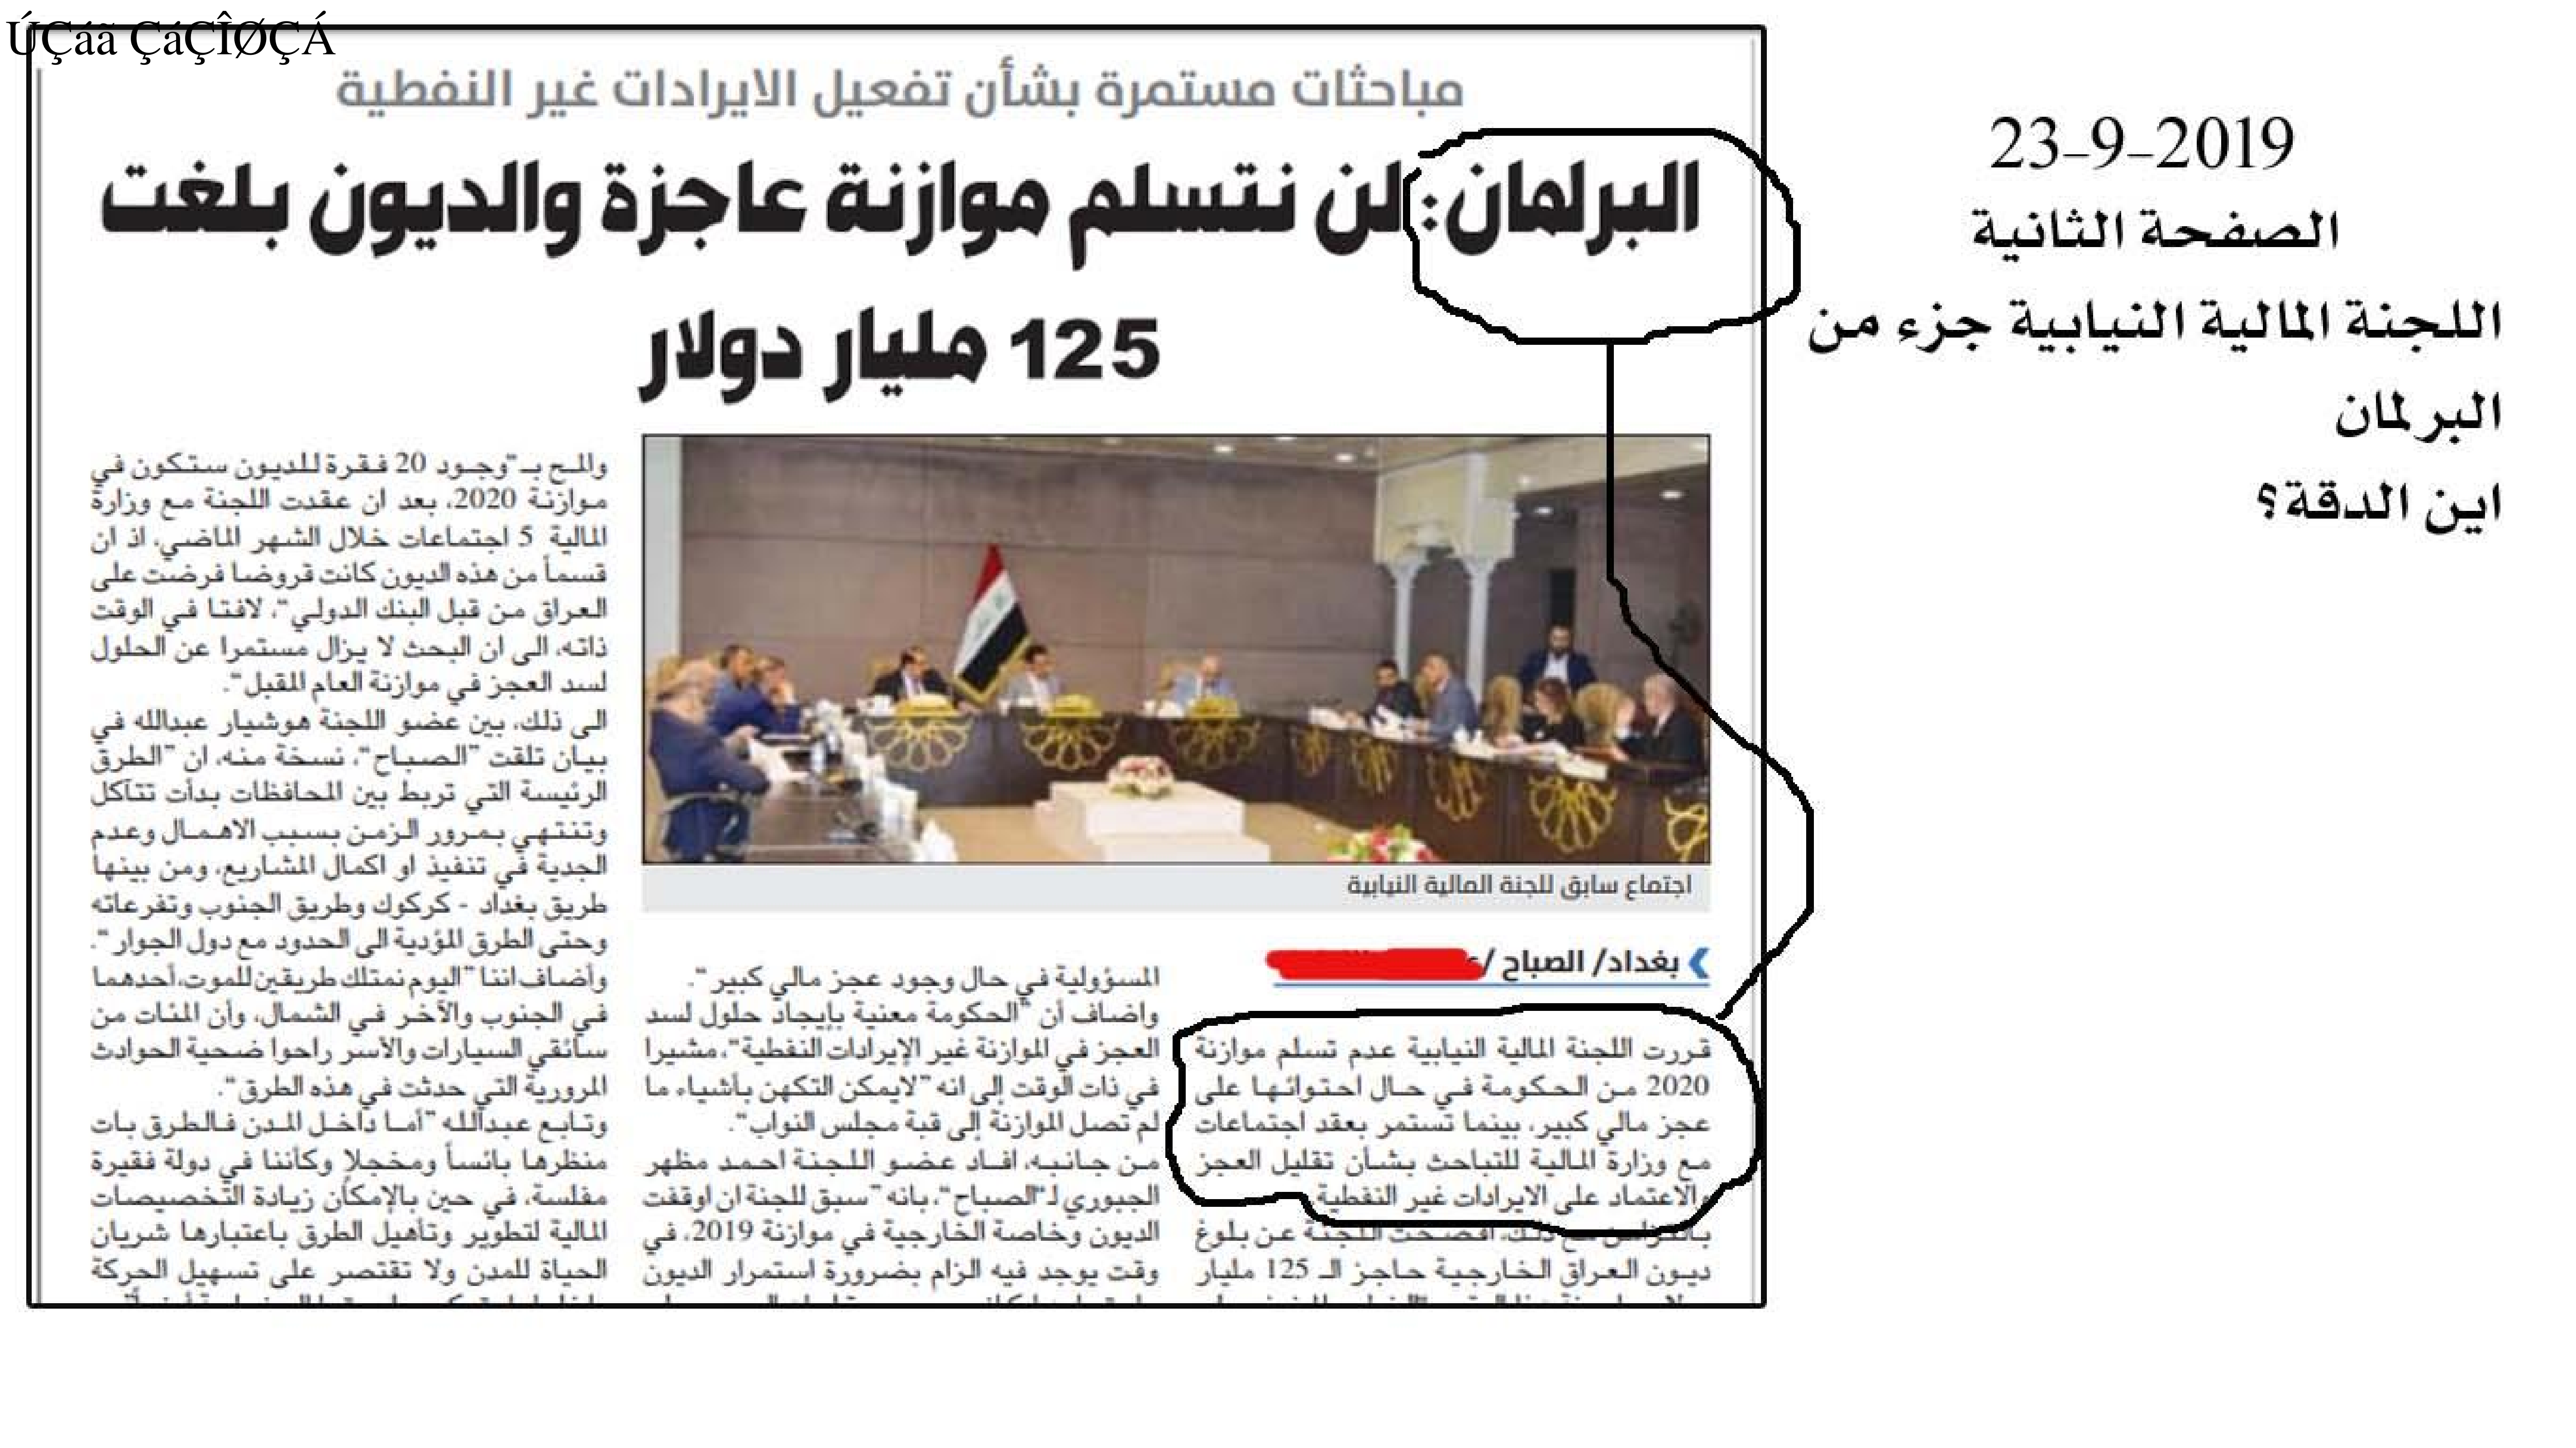 ÚÇáã ÇáÇÎØÇÁ
مباحثات مستمرة بشأن تفعيل الايرادات غير النفطية
البرلمان: لن نتسلم موازنة عاجزة والديون بلغت
125 مليار دولار
اجتماع سابق للجنة المالية النيابية
بغداد/ الصباح /
قررت اللجنة المالية النيابية عدم تسلم موازنة
2020 من الحكومة في حال احتوائها على
عجز مالي كبير، بينما تستمر بعقد اجتماعات
مع وزارة المالية للتباحث بشأن تقليل العجز
والاعتماد على الايرادات غير النفطية.
بالتزامن مع ذلك، افصحت اللجنة عن بلوغ
ديون العراق الخارجية حاجز الـ 125 مليار
المسؤولية في حال وجود عجز مالي كبير“.
واضاف أن ”الحكومة معنية بإيجاد حلول لسد
العجز في الموازنة غير الإيرادات النفطية“، مشيرا
في ذات الوقت إلى انه ”لايمكن التكهن بأشياء ما
لم تصل الموازنة إلى قبة مجلس النواب“.
من جانبه، افاد عضو اللجنة احمد مظهر
الجبوري لـ“الصباح“، بانه ”سبق للجنة ان اوقفت
الديون وخاصة الخارجية في موازنة 2019، في
وقت يوجد فيه الزام بضرورة استمرار الديون
والمح بـ“وجود 20 فقرة للديون ستكون في
موازنة 2020، بعد ان عقدت اللجنة مع وزارة
المالية 5 اجتماعات خلال الشهر الماضي، اذ ان
قسماً من هذه الديون كانت قروضا فرضت على
العراق من قبل البنك الدولي“، لافتا في الوقت
ذاته، الى ان البحث لا يزال مستمرا عن الحلول
لسد العجز في موازنة العام المقبل“.
الى ذلك، بين عضو اللجنة هوشيار عبدالله في
بيان تلقت ”الصباح“، نسخة منه، ان ”الطرق
الرئيسة التي تربط بين المحافظات بدأت تتآكل
وتنتهي بمرور الزمن بسبب الاهمال وعدم
الجدية في تنفيذ او اكمال المشاريع، ومن بينها
طريق بغداد - كركوك وطريق الجنوب وتفرعاته
وحتى الطرق المؤدية الى الحدود مع دول الجوار“.
وأضاف اننا ”اليوم نمتلك طريقين للموت، أحدهما
في الجنوب والآخر في الشمال، وأن المئات من
سائقي السيارات والأسر راحوا ضحية الحوادث
المرورية التي حدثت في هذه الطرق“.
وتابع عبدالله ”أما داخل المدن فالطرق بات
منظرها بائساً ومخجلا وكأننا في دولة فقيرة
مفلسة، في حين بالإمكان زيادة التخصيصات
المالية لتطوير وتأهيل الطرق باعتبارها شريان
الحياة للمدن ولا تقتصر على تسهيل الحركة
23-9-2019
الصفحة الثانية
اللجنة المالية النيابية جزء من
البرلمان
اين الدقة؟